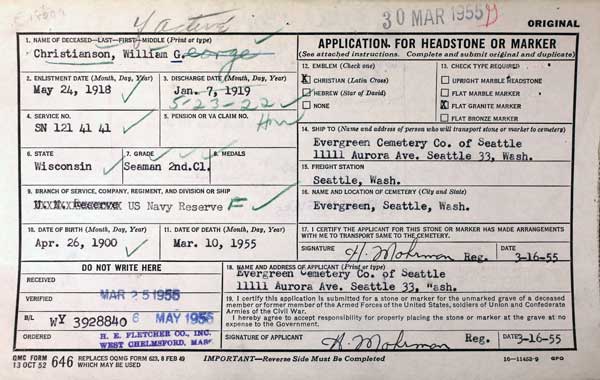 30 MAR 1955
ORIGINAL
1. NAME OF DECEASED—LAST—FIRST—MIDDLE (Print or type)
Christianson, William George
APPLICATION FOR HEADSTONE OR MARKER
(See attached instructions. Complete and submit original and duplicate)
2. ENLISTMENT DATE (Month, Day, Year)
May 24, 1918
3. DISCHARGE DATE (Month, Day, Year)
Jan. 7, 1919
5-23-22
12. EMBLEM (Check one)
X CHRISTIAN (Latin Cross)
HEBREW (Star of David)
NONE
13. CHECK TYPE REQUIRED
UPRIGHT MARBLE HEADSTONE
FLAT MARBLE MARKER
X FLAT GRANITE MARKER
FLAT BRONZE MARKER
4. SERVICE NO.
SN 121 41 41
5. PENSION OR VA CLAIM NO.
14. SHIP TO (Name and address of person who will transport stone or marker to cemetery)
Evergreen Cemetery Co. of Seattle
11111 Aurora Ave. Seattle 33, Wash.
6. STATE
Wisconsin
7. GRADE
Seaman 2nd.Cl.
8. MEDALS
15. FREIGHT STATION
Seattle, Wash.
9. BRANCH OF SERVICE, COMPANY, REGIMENT, AND DIVISION OR SHIP
US Navy Reserve F
16. NAME AND LOCATION OF CEMETERY (City and State)
Evergreen, Seattle, Wash.
10. DATE OF BIRTH (Month, Day, Year)
Apr. 26, 1900
11. DATE OF DEATH (Month, Day, Year)
Mar. 10, 1955
17. I CERTIFY THE APPLICANT FOR THIS STONE OR MARKER HAS MADE ARRANGEMENTS WITH ME TO TRANSPORT SAME TO THE CEMETERY.
SIGNATURE H. Mohrman Reg. DATE 3-16-55
DO NOT WRITE HERE
RECEIVED
VERIFIED MAR 25 1955
B/L WY 3928840 6 MAY 1955
ORDERED H. E. FLETCHER CO., INC.
WEST CHELMSFORD, MASS
18. NAME AND ADDRESS OF APPLICANT (Print or type)
Evergreen Cemetery Co. of Seattle
11111 Aurora Ave. Seattle 33, Wash.
19. I certify this application is submitted for a stone or marker for the unmarked grave of a deceased
member or former member of the Armed Forces of the United States, soldiers of Union and Confederate
Armies of the Civil War.
I hereby agree to accept responsibility for properly placing the stone or marker at the grave at no
expense to the Government.
SIGNATURE H. Mohrman Reg. DATE 3-16-55
QMC FORM 13 OCT 52 646 REPLACES OQMG FORM 623, 8 FEB 49 WHICH MAY BE USED
IMPORTANT—Reverse Side Must be Completed
16—11453-9 GPO